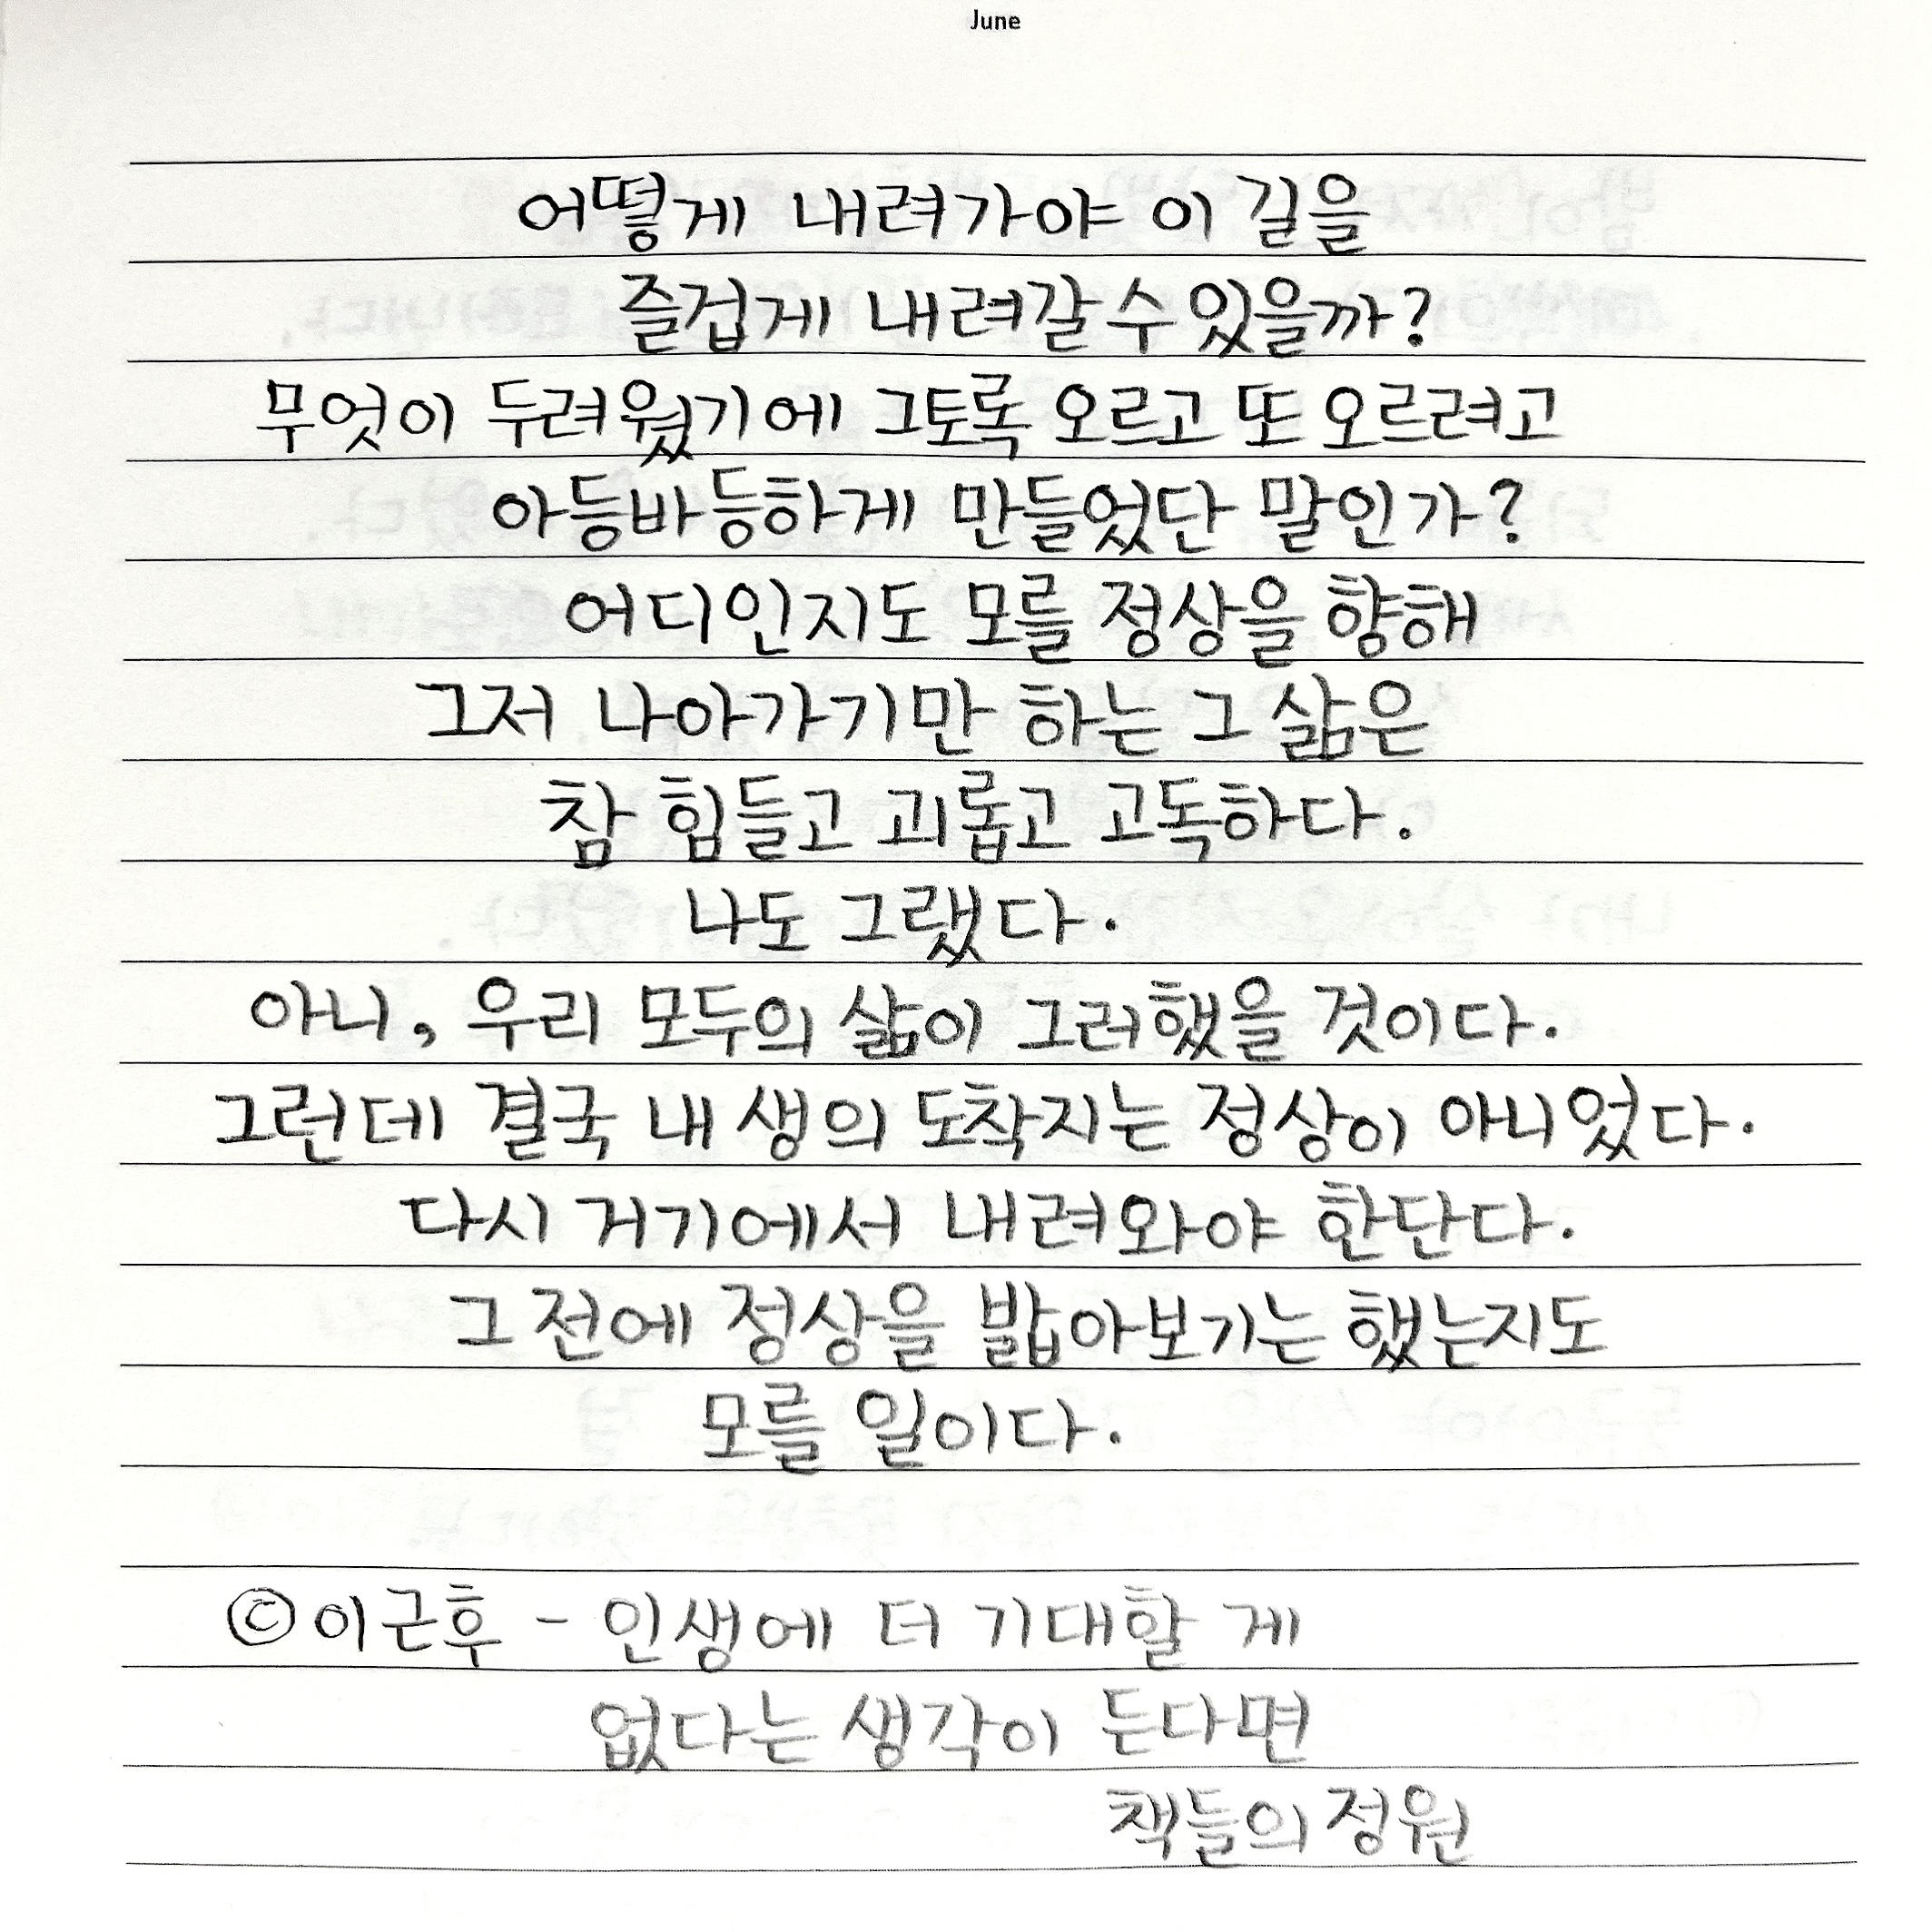 June
어떻게 내려가야 이 길을
즐겁게 내려갈 수 있을까?
무엇이 두려웠기에 그토록 오르고 또 오르려고
아등바등하게 만들었단 말인가?
어디인지도 모를 정상을 향해
그저 나아가기만 하는 그 삶은
참 힘들고 괴롭고 고독하다.
나도 그랬다.
아니, 우리 모두의 삶이 그러했을 것이다.
그런데 결국 내 생의 도착지는 정상이 아니었다.
다시 거기에서 내려와야 한단다.
그 전에 정상을 밟아보기는 했는지도
모를 일이다.
©이근후 - 인생에 더 기대할 게
없다는 생각이 든다면
책들의 정원